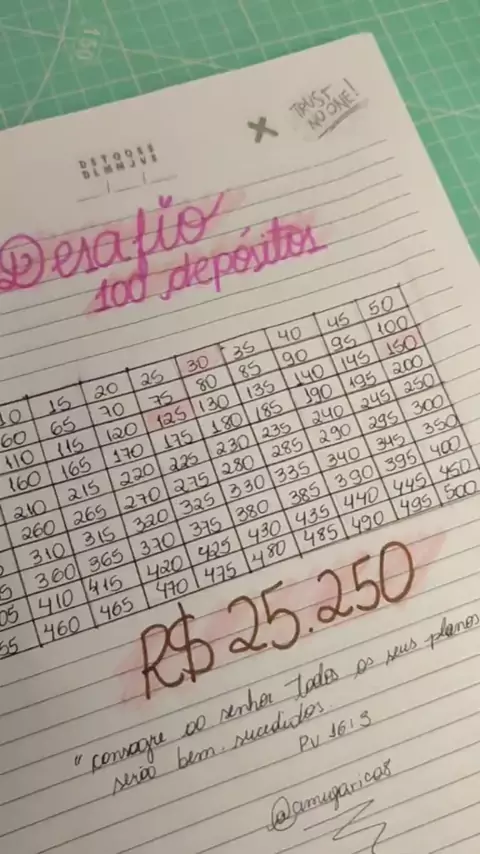 TRUST
NO ONE!
Desafio
100 depósitos
10 15 20 25 30 35 40 45 50
60 65 70 75 80 85 90 95 100
110 115 120 125 130 135 140 145 150
160 165 170 175 180 185 190 195 200
210 215 220 225 230 235 240 245 250
260 265 270 275 280 285 290 295 300
310 315 320 325 330 335 340 345 350
5 360 365 370 375 380 385 390 395 400
05 410 415 420 425 430 435 440 445 450
55 460 465 470 475 480 485 490 495 500
R$ 25.250
"consagre ao senhor todos os seus planos
serão bem. sucedidos.
PV 16:3
@amigaricas